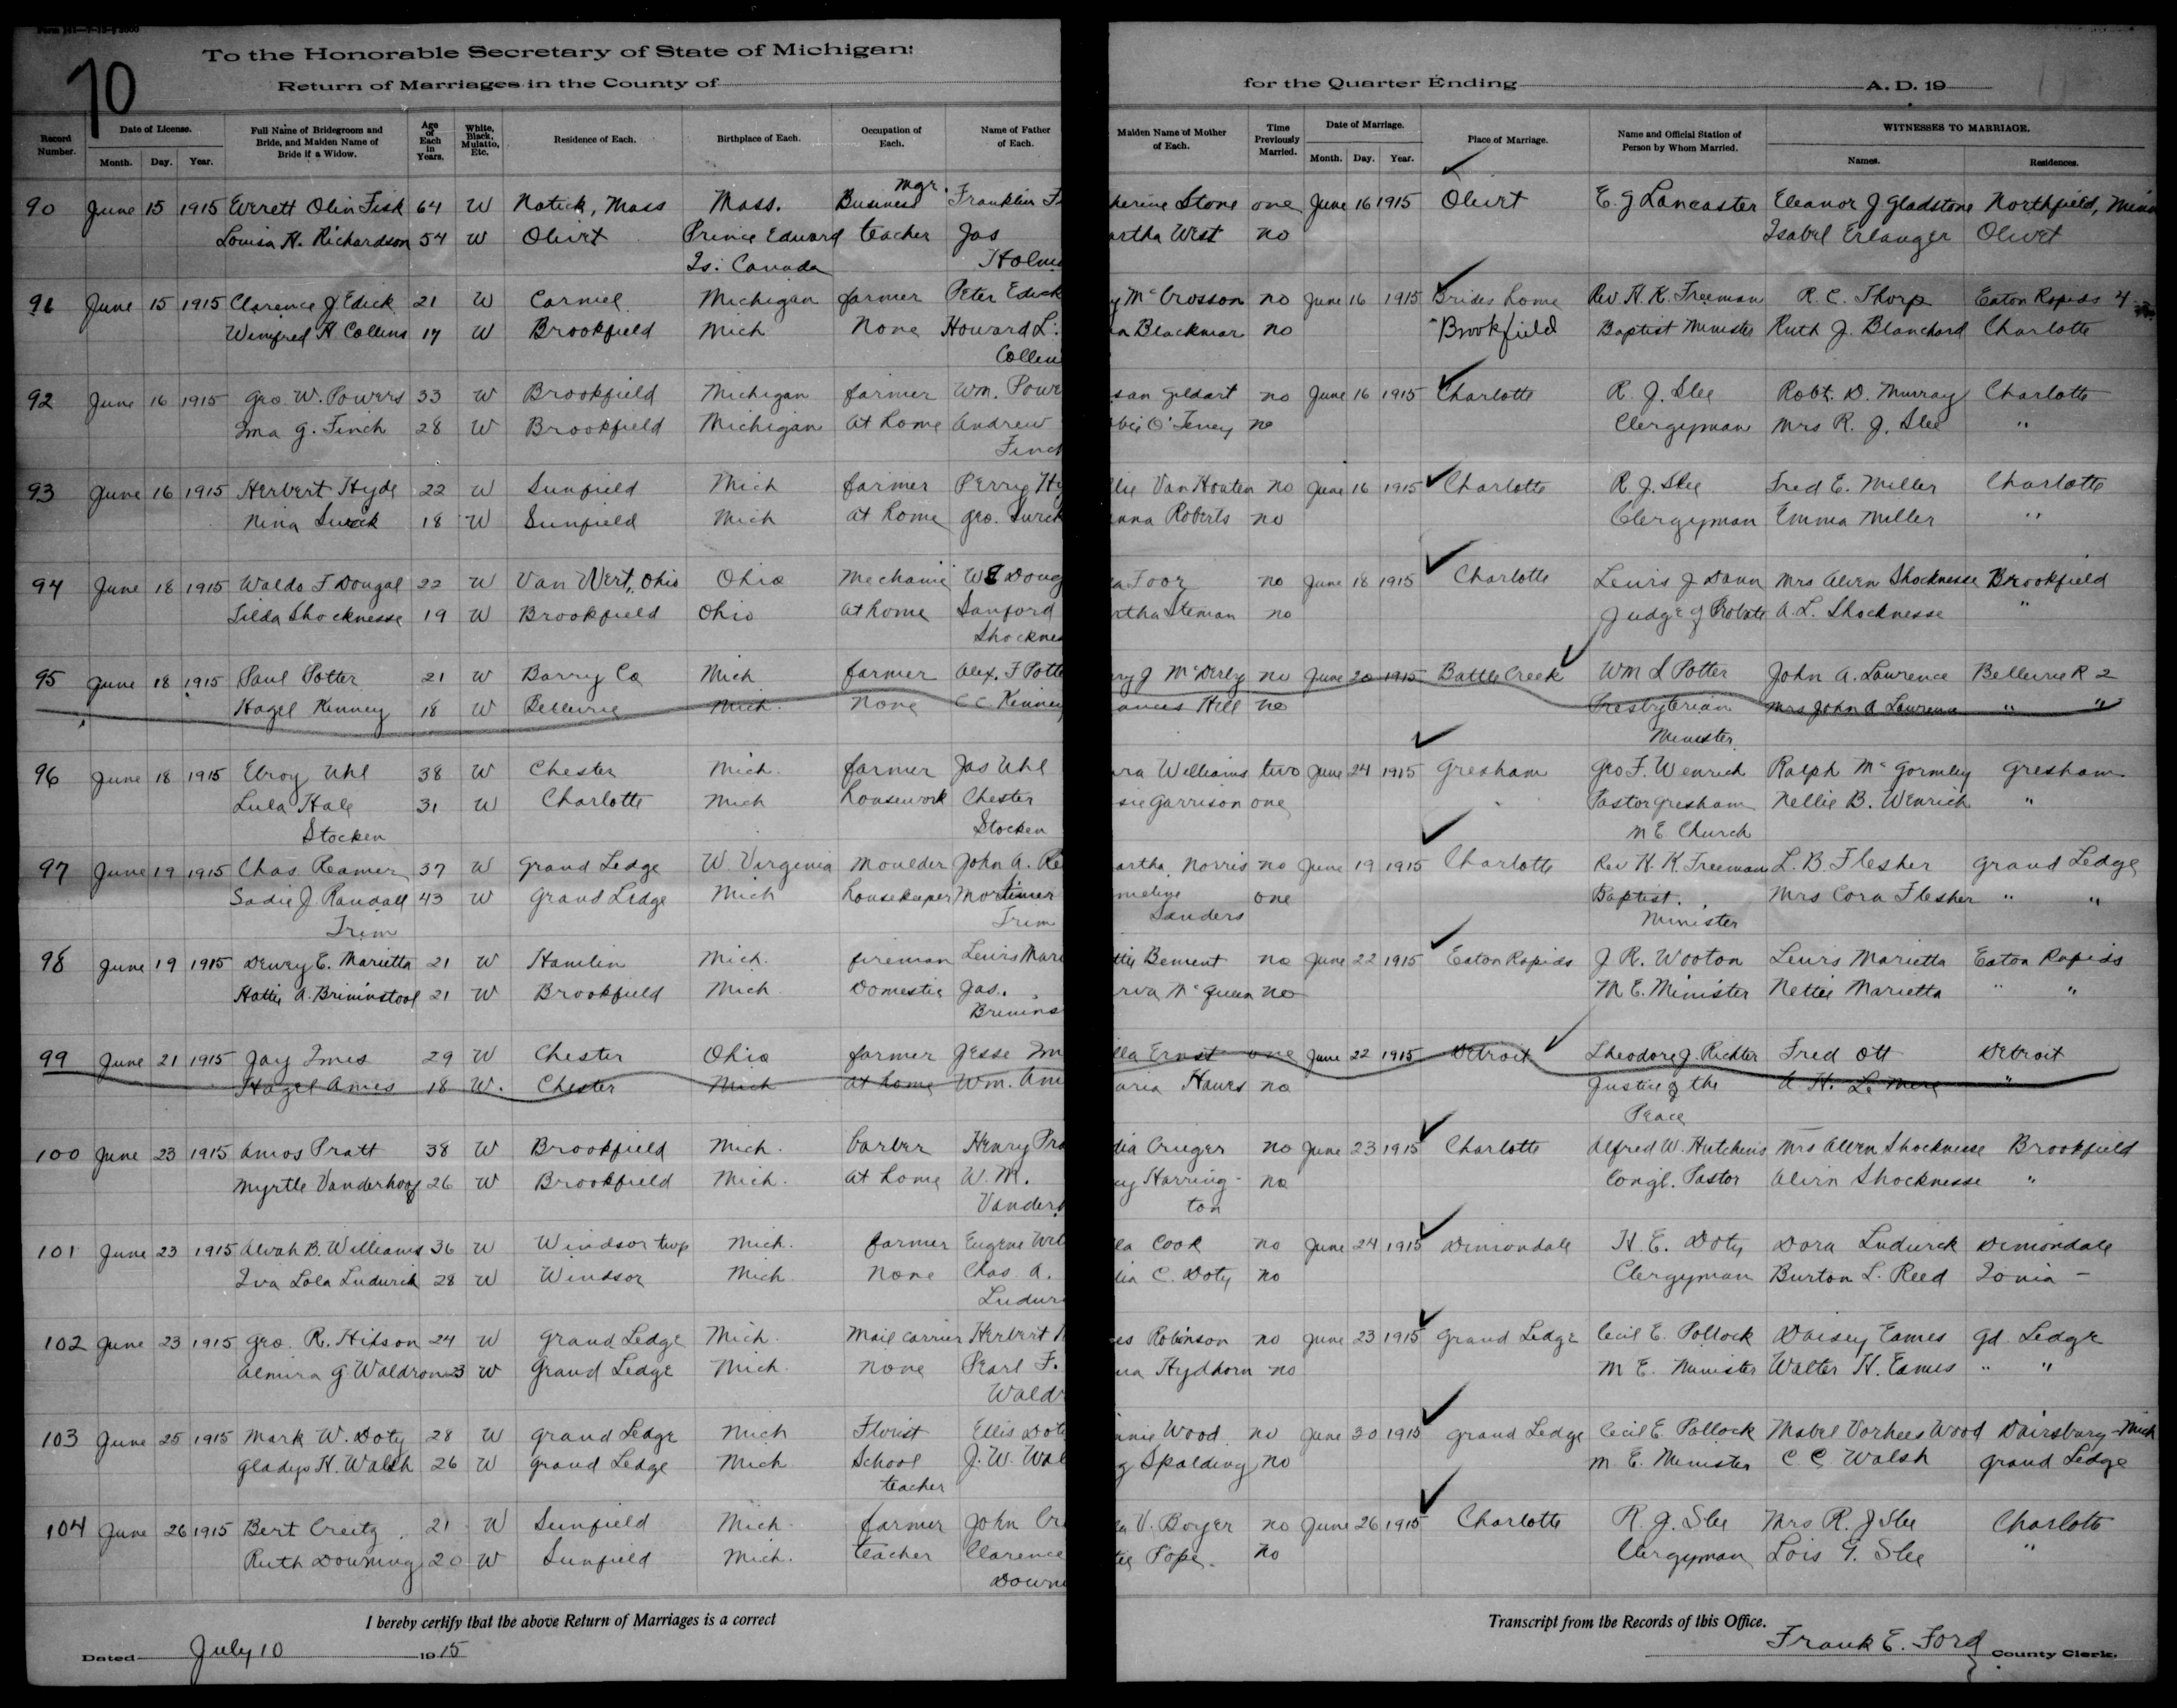 Form 101—7-13-9 3000
70
To the Honorable Secretary of State of Michigan:
Return of Marriages in the County of for the Quarter Ending A. D. 19
Record Number. Date of License. Month. Day. Year. Full Name of Bridegroom and Bride, and Maiden Name of Bride if a Widow. Age of Each in Years. White, Black, Mulatto, Etc. Residence of Each. Birthplace of Each. Occupation of Each. Name of Father of Each. Maiden Name of Mother of Each. Time Previously Married. Date of Marriage. Month. Day. Year. Place of Marriage. Name and Official Station of Person by Whom Married. WITNESSES TO MARRIAGE. Names. Residences.
mgr.
90 June 15 1915 Everett Olin Fisk 64 W Natick, Mass Mass. Business Franklin Fi herine Stone one June 16 1915 Olivet E. G Lancaster Eleanor J. Gladstone Northfield, Minn
Louisa H. Richardson 54 W Olivet Prince Edward teacher Jas artha West no Isabel Erlanger Olivet
Is. Canada Holme
91 June 15 1915 Clarence J Edick 21 W Carmel Michigan farmer Peter Edick y McCrosson no June 16 1915 Brides home Rev H. K. Freeman R. C. Thorp Eaton Rapids 4
Winifred H Collins 17 W Brookfield Mich None Howard L. a Blackmar no Brookfield Baptist Minister Ruth J. Blanchard Charlotte
Collin
92 June 16 1915 Geo W. Powers 33 W Brookfield Michigan farmer Wm. Powe san Geldart no June 16 1915 Charlotte R. J. Slee Robt. D. Murray Charlotte
Ima G. Finch 28 W Brookfield Michigan at home Andrew bie O'Teney no Clergyman Mrs R. J. Slee "
Finch
93 June 16 1915 Herbert Hyde 22 W Sunfield Mich farmer Perry Hy lie Van Houten no June 16 1915 Charlotte R. J. Slee Fred E. Miller Charlotte
Nina Swick 18 W Sunfield Mich at home Geo. Swick anna Roberts no Clergyman Emma Miller "
94 June 18 1915 Waldo F Dougal 22 W Van Wert, Ohio Ohio Mechanic W E Doug a Foor no June 18 1915 Charlotte Lewis J Dann Mrs Alvin Shocknesse Brookfield
Tilda Shocknesse 19 W Brookfield Ohio at home Sanford rtha Steman no Judge of Probate A. L. Shocknesse "
Shocknes
95 June 18 1915 Paul Potter 21 W Barry Co Mich farmer Alex. F Potte ry J McDerby no June 20 1915 Battle Creek Wm L Potter John A. Lawrence Bellevue R 2
Hazel Kinney 18 W Bellevue Mich. None C C. Kinney ances Hill no Presbyterian Mrs John A Lawrence " "
Minister
96 June 18 1915 Elroy Uhl 38 W Chester Mich. farmer Jas Uhl ra Williams two June 24 1915 Gresham Geo F. Wenrich Ralph McGormley Gresham
Lula Hale 31 W Charlotte Mich housework Chester sie Garrison one Pastor Gresham Nellie B. Wenrich "
Stocken Stocken M E Church
97 June 19 1915 Chas Reamer 37 W Grand Ledge W. Virginia Moulder John A. Re artha Norris no June 19 1915 Charlotte Rev H. K. Freeman L. B Flesher Grand Ledge
Sadie J. Randall 43 W Grand Ledge Mich housekeeper Mortimer meline one Baptist Mrs Cora Flesher " "
Trim Trim Sanders Minister
98 June 19 1915 Dewey E. Marietta 21 W Hamlin Mich. fireman Lewis Mari ttie Bement no June 22 1915 Eaton Rapids J R. Wooton Lewis Marietta Eaton Rapids
Hattie A. Brininstool 21 W Brookfield Mich. Domestic Jas. rva McQueen no M E. Minister Nettie Marietta " "
Brinins
99 June 21 1915 Jay Imes 29 W Chester Ohio farmer Jesse Im lla Ernst one June 22 1915 Detroit Theodore J. Richter Fred Ott Detroit
Hazel Ames 18 W. Chester Mich at home Wm. Am aria Hawes no Justice of the A. H. Le Mere "
Peace
100 June 23 1915 Amos Pratt 38 W Brookfield Mich. barber Henry Pra dia Cruger no June 23 1915 Charlotte Alfred W. Hutchins Mrs Alvin Shocknesse Brookfield
Myrtle Vanderhoof 26 W Brookfield Mich. at home W. M. cy Harring- no Congl. Pastor Alvin Shocknesse "
Vanderh ton
101 June 23 1915 Alvah B. Williams 36 W Windsor twp Mich. farmer Eugene Wil la Cook no June 24 1915 Dimondale H. E. Doty Dora Ludwick Dimondale
Iva Lola Ludwick 28 W Windsor Mich None Chas A. lia C. Doty no Clergyman Burton L. Reed Ionia —
Ludwi
102 June 23 1915 Geo. R. Hixson 24 W Grand Ledge Mich. Mail carrier Herbert H es Robinson no June 23 1915 Grand Ledge Cecil E. Pollock Daisey Eames Gd. Ledge
Almira G. Waldron 23 W Grand Ledge Mich. None Pearl F. na Hydhorn no M E. Minister Walter H. Eames " "
Waldr
103 June 25 1915 Mark W. Doty 28 W Grand Ledge Mich Florist Ellis Dot nnie Wood no June 30 1915 Grand Ledge Cecil E. Pollock Mabel Vorhees Wood Davisburg-Mich
Gladys H. Walsh 26 W Grand Ledge Mich. School J. W. Wal g Spalding no M. E. Minister C C Walsh Grand Ledge
teacher
104 June 26 1915 Bert Creitz 21 W Sunfield Mich. farmer John Cr la V. Boyer no June 26 1915 Charlotte R. J. Slee Mrs R. J Slee Charlotte
Ruth Downing 20 W Sunfield Mich. teacher Clarence tie Pope. no Clergyman Lois G. Slee "
Downi
I hereby certify that the above Return of Marriages is a correct Transcript from the Records of this Office.
Dated July 10 1915 Frank E. Ford County Clerk.